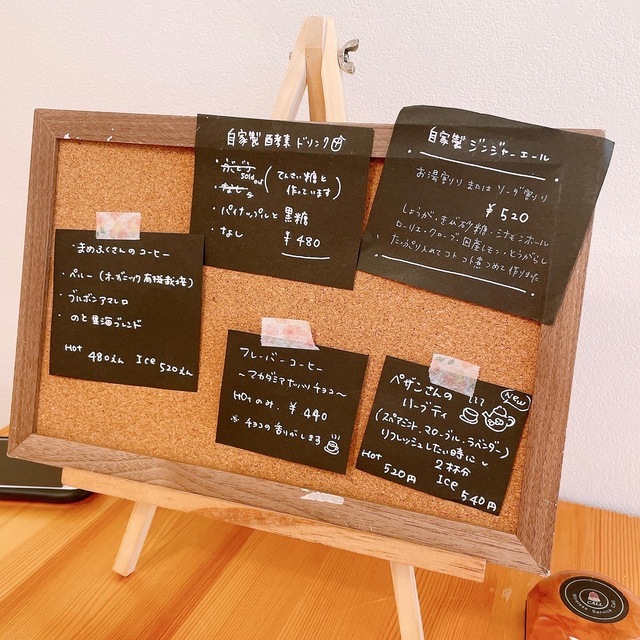 自家製 酵素 ドリンク
・ぶどう sold out
・なし
(てんさい糖で
作っています)
・パイナップルと黒糖
・なし
¥480
自家製 ジンジャーエール
お湯割り または ソーダ割り
¥520
しょうが・きび砂糖・シナモンホール
ローリエ・クローブ・国産レモン・とうがらし
たっぷり入れてコトコト煮つめて作りました
・まめふくさんのコーヒー
・ペルー(オーガニック有機栽培)
・ブルボンアマレロ
・のと黒海ブレンド
Hot 480えん Ice 520えん
フレーバーコーヒー
〜マカダミアナッツチョコ〜
HOTのみ ¥440
※チョコの香りがします
ペザンさんの
ハーブティ
New
(スペアミント、マローブルー、ラベンダー)
リフレッシュしたい時に
2杯分
Hot
520円
Ice
540円
CALL
Wireless Service Call